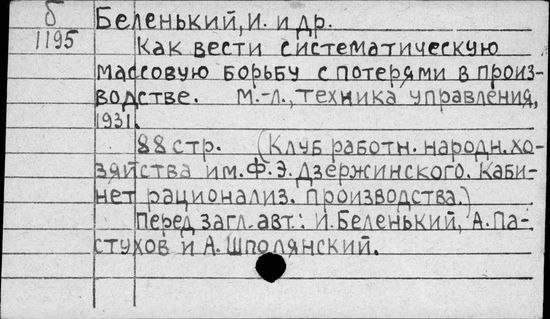 б
1195
Беленький, И. и др.
Как вести систематическую
массовую борьбу с потерями в произ-
водстве. М.-Л., Техника управления,
1931.
88 стр. (Клуб работн. народн. хо-
зяйства им. Ф. Э. Дзержинского. Каби-
нет рационализ. производства.)
Перед загл. авт.: И. Беленький, А. Па-
стухов и А. Шполянский.